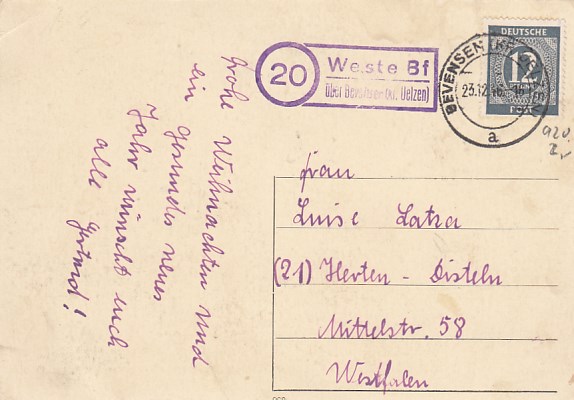 frohe Weihnachten und
ein gesundes neues
Jahr wünscht euch
alle Gertrud!
20
Weste Bf
über Bevensen (Kr. Uelzen)
BEVENSEN
23.12.46
a
DEUTSCHE
12
POST
920.
Frau
Luise Latza
(21) Herten - Disteln
Mittelstr. 58
Westfalen